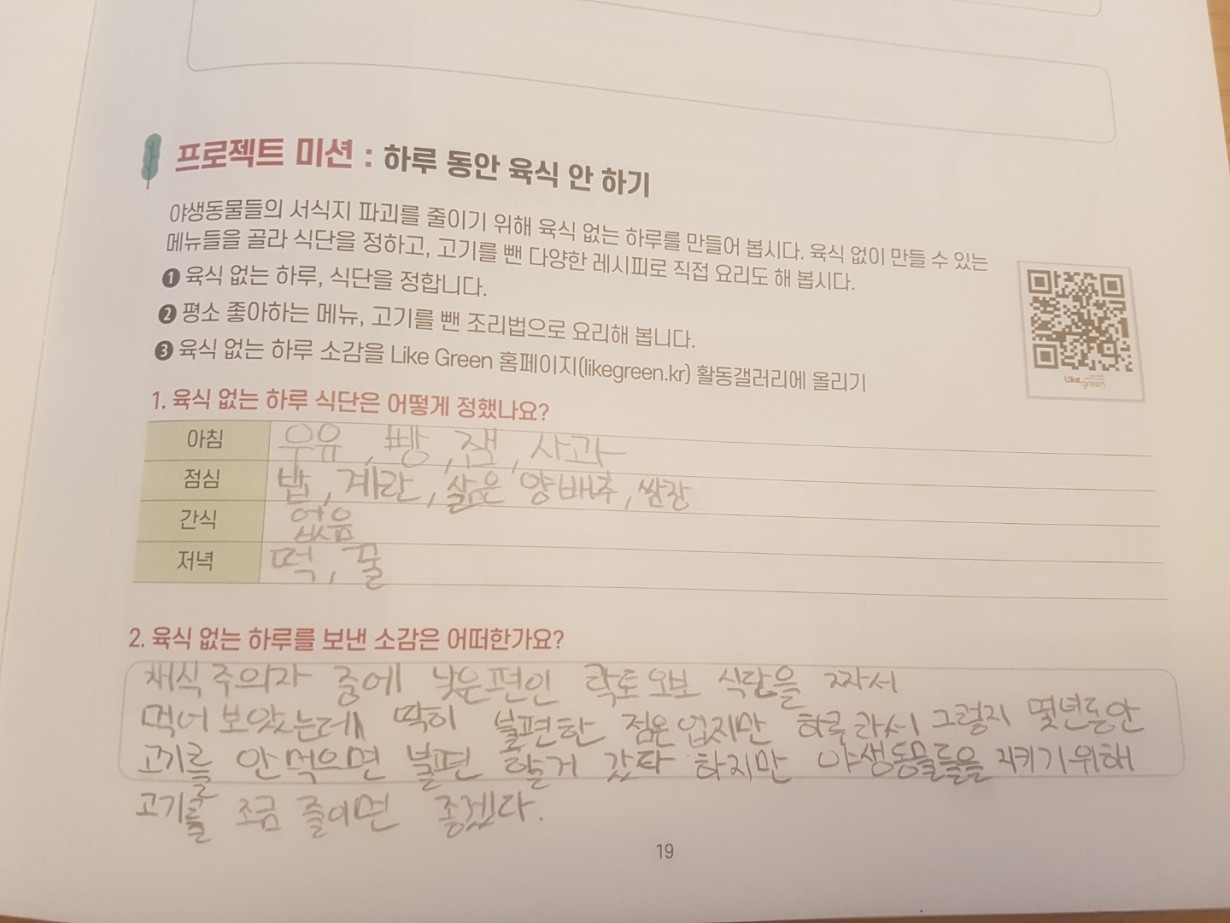 프로젝트 미션 : 하루 동안 육식 안 하기
야생동물들의 서식지 파괴를 줄이기 위해 육식 없는 하루를 만들어 봅시다. 육식 없이 만들 수 있는
메뉴들을 골라 식단을 정하고, 고기를 뺀 다양한 레시피로 직접 요리도 해 봅시다.
❶ 육식 없는 하루, 식단을 정합니다.
❷ 평소 좋아하는 메뉴, 고기를 뺀 조리법으로 요리해 봅니다.
❸ 육식 없는 하루 소감을 Like Green 홈페이지(likegreen.kr) 활동갤러리에 올리기
Like green
1. 육식 없는 하루 식단은 어떻게 정했나요?
아침 우유, 빵, 잼, 사과
점심 밥, 계란, 삶은 양배추, 쌈장
간식 없음
저녁 떡, 꿀
2. 육식 없는 하루를 보낸 소감은 어떠한가요?
채식주의자 중에 낮은편인 락토 오보 식단을 짜서
먹어 보았는데 딱히 불편한 점은 없지만 하루라서 그렇지 몇년동안
고기를 안 먹으면 불편 할거 갔다 하지만 야생동물들을 지키기 위해
고기를 조금 줄이면 좋겠다.
19